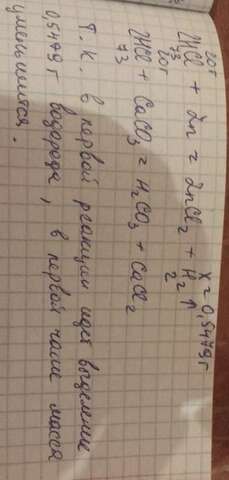 20г x = 0,5479г
2HCl + Zn = ZnCl₂ + H₂↑
73 2
20г
2HCl + CaCO₃ = H₂CO₃ + CaCl₂
73
Т.К. в первой реакции идёт выделение
0,5479г водорода, в первой чаше масса
уменьшится.